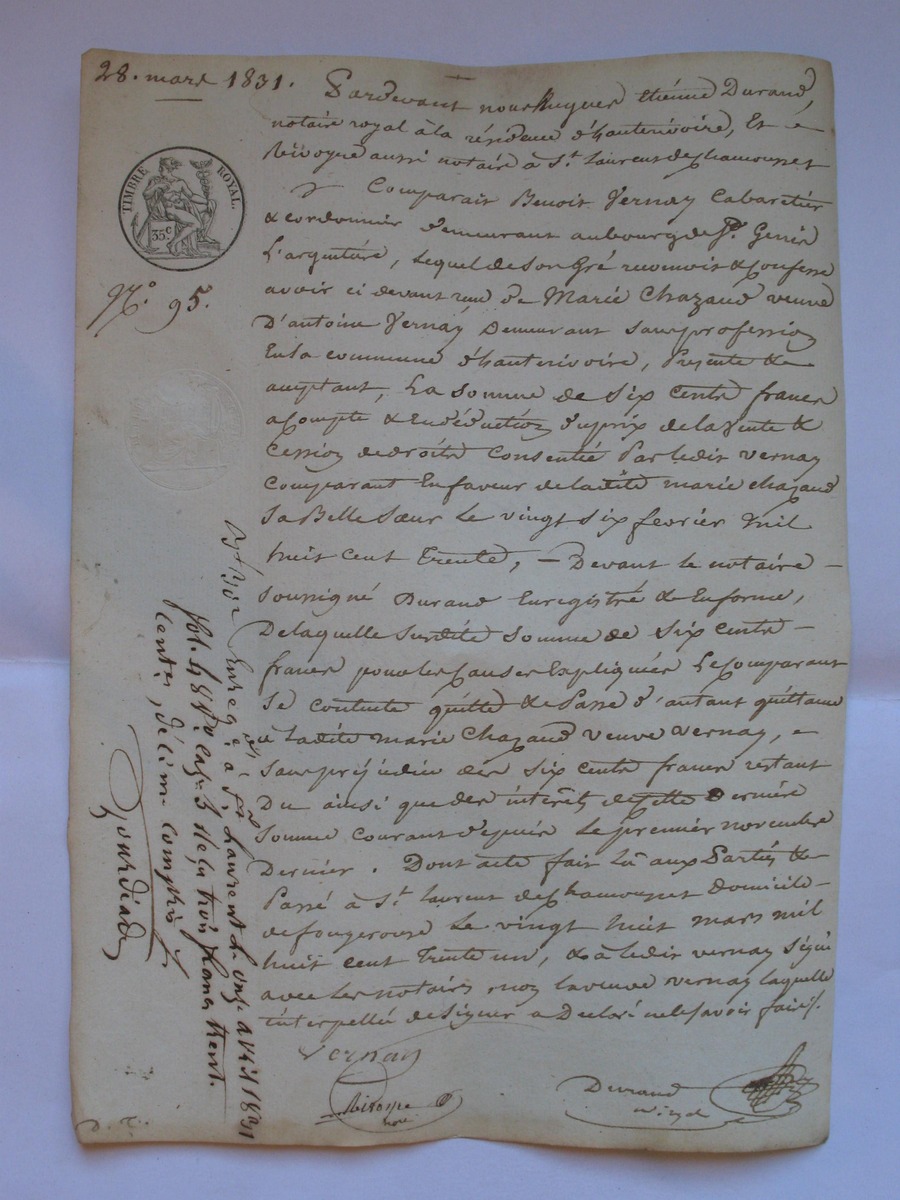 28. mars 1831.
Pardevant nous hugues Etiénne Durand,
notaire royal à la résidence d'hauterivoire, Et
aussi notaire à St. laurent de chamousset
Comparait Benoit Vernay Cabaretier
& cordonnier demeurant au bourg de St. Genis
L'argentiére, lequel de son gré reconnoit & confesse
avoir ci devant reçu de Marie Chazaud veuve
D'antoine Vernay, Demeurant sans profession
En la commune d'hauterivoire, Présente &
acceptant, La somme de Six cents francs
acompte & En déduction du prix de la vente &
Cession de droits Consentie Par ledit Vernay
Comparant En faveur de ladite marie chazaud
Sa Belle Sœur Le vingt Six fevrier mil
huit cent Trente, — Devant le notaire —
soussigné Durand Enregistré & En forme,
De laquelle Susdite Somme de Six cents —
francs pour les causes Expliquées Le Comparant
Se contente quitte & Passe d'autant quittance
à Ladite marie Chazaud Veuve Vernay,
Sans préjudice des Six cents francs restant
Du ainsi que des intérêts de cette Derniére
Somme courant depuis Le premier novembre
Dernier. Dont acte fait lu aux Parties &
Passé à St. laurent de chamousset Domicile
de fougerouse Le vingt huit mars mil
huit cent trente un, & a ledit vernay signé
avec Les notaires, non la veuve vernay laquelle
interpellée de signer a Déclaré ne le savoir faire /.
Vernay
Durand
TIMBRE ROYAL.
35 c
No. 95.
Enreg. à St. Laurent le onze avril 1831
fol. 48 Vo case 3 reçu trois francs trent
centes, décime compris